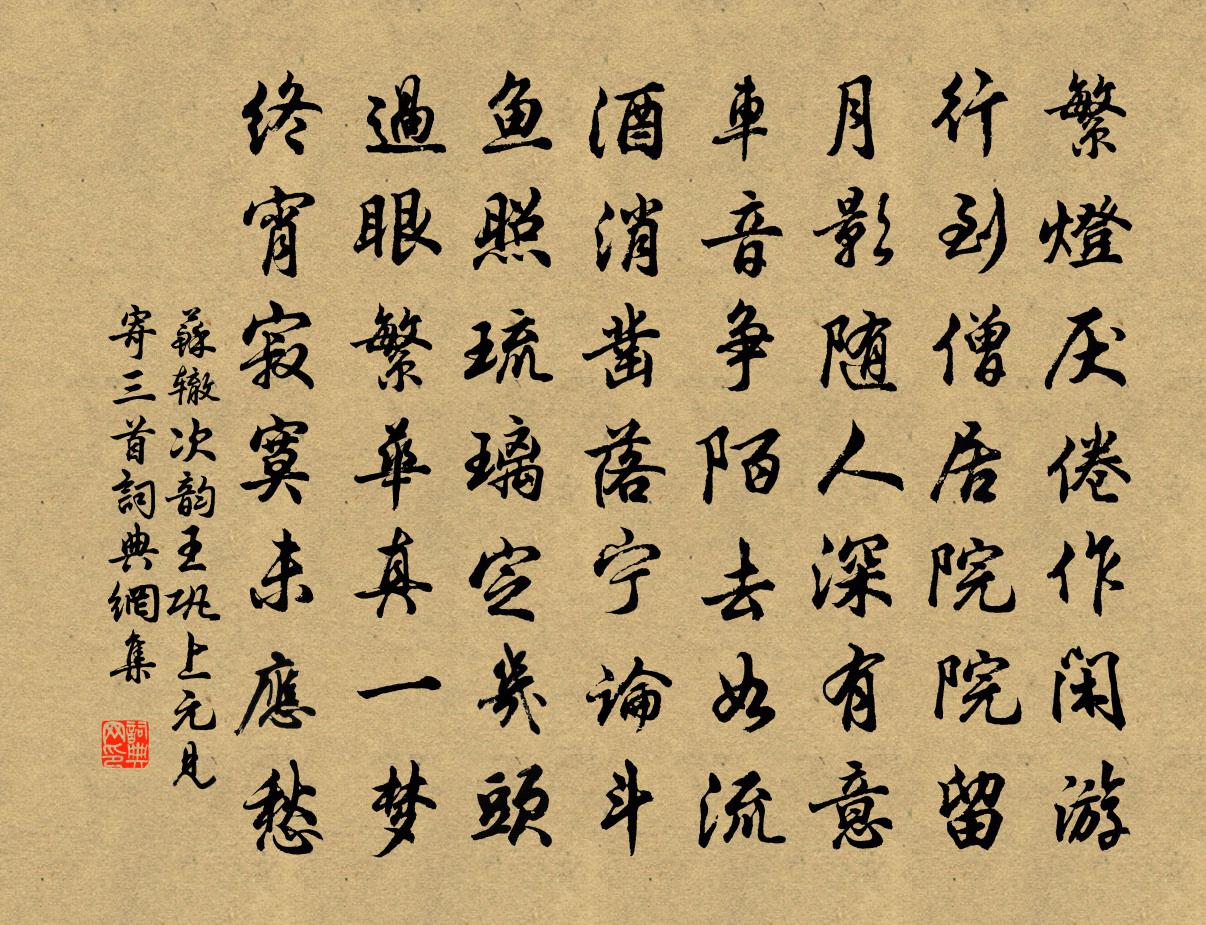 繁燈厌倦作闲游
行到僧居院院留
月影随人深有意
車音争陌去如流
酒消凿落宁論斗
鱼照琉璃定幾頭
過眼繁華真一梦
終宵寂寞未應愁
蘇辙次韵王巩上元見
寄三首詞典網集
詞典网印